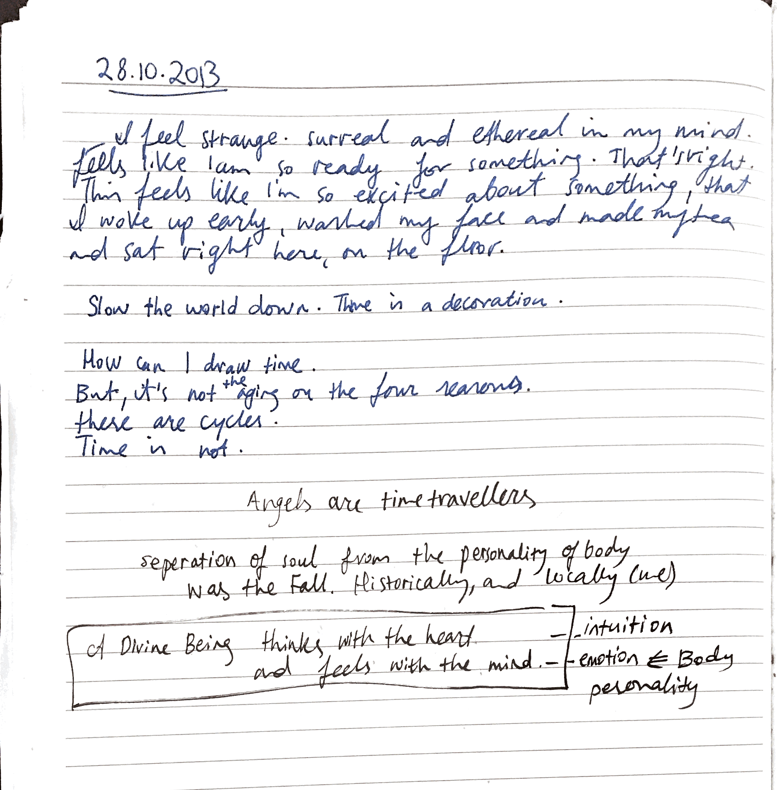 28.10.2013
I feel strange. surreal and ethereal in my mind.
feels like I am so ready for something. That's right.
This feels like I'm so excited about something, that
I woke up early, washed my face and made my tea
and sat right here, on the floor.
Slow the world down. Time is a decoration.
How can I draw time.
But, it's not the aging or the four seasons.
these are cycles.
Time is not.
Angels are time travellers
seperation of soul from the personality of body
was the Fall. Historically, and locally (me)
A Divine Being thinks with the heart - intuition
and feels with the mind. - emotion ∈ Body
personality